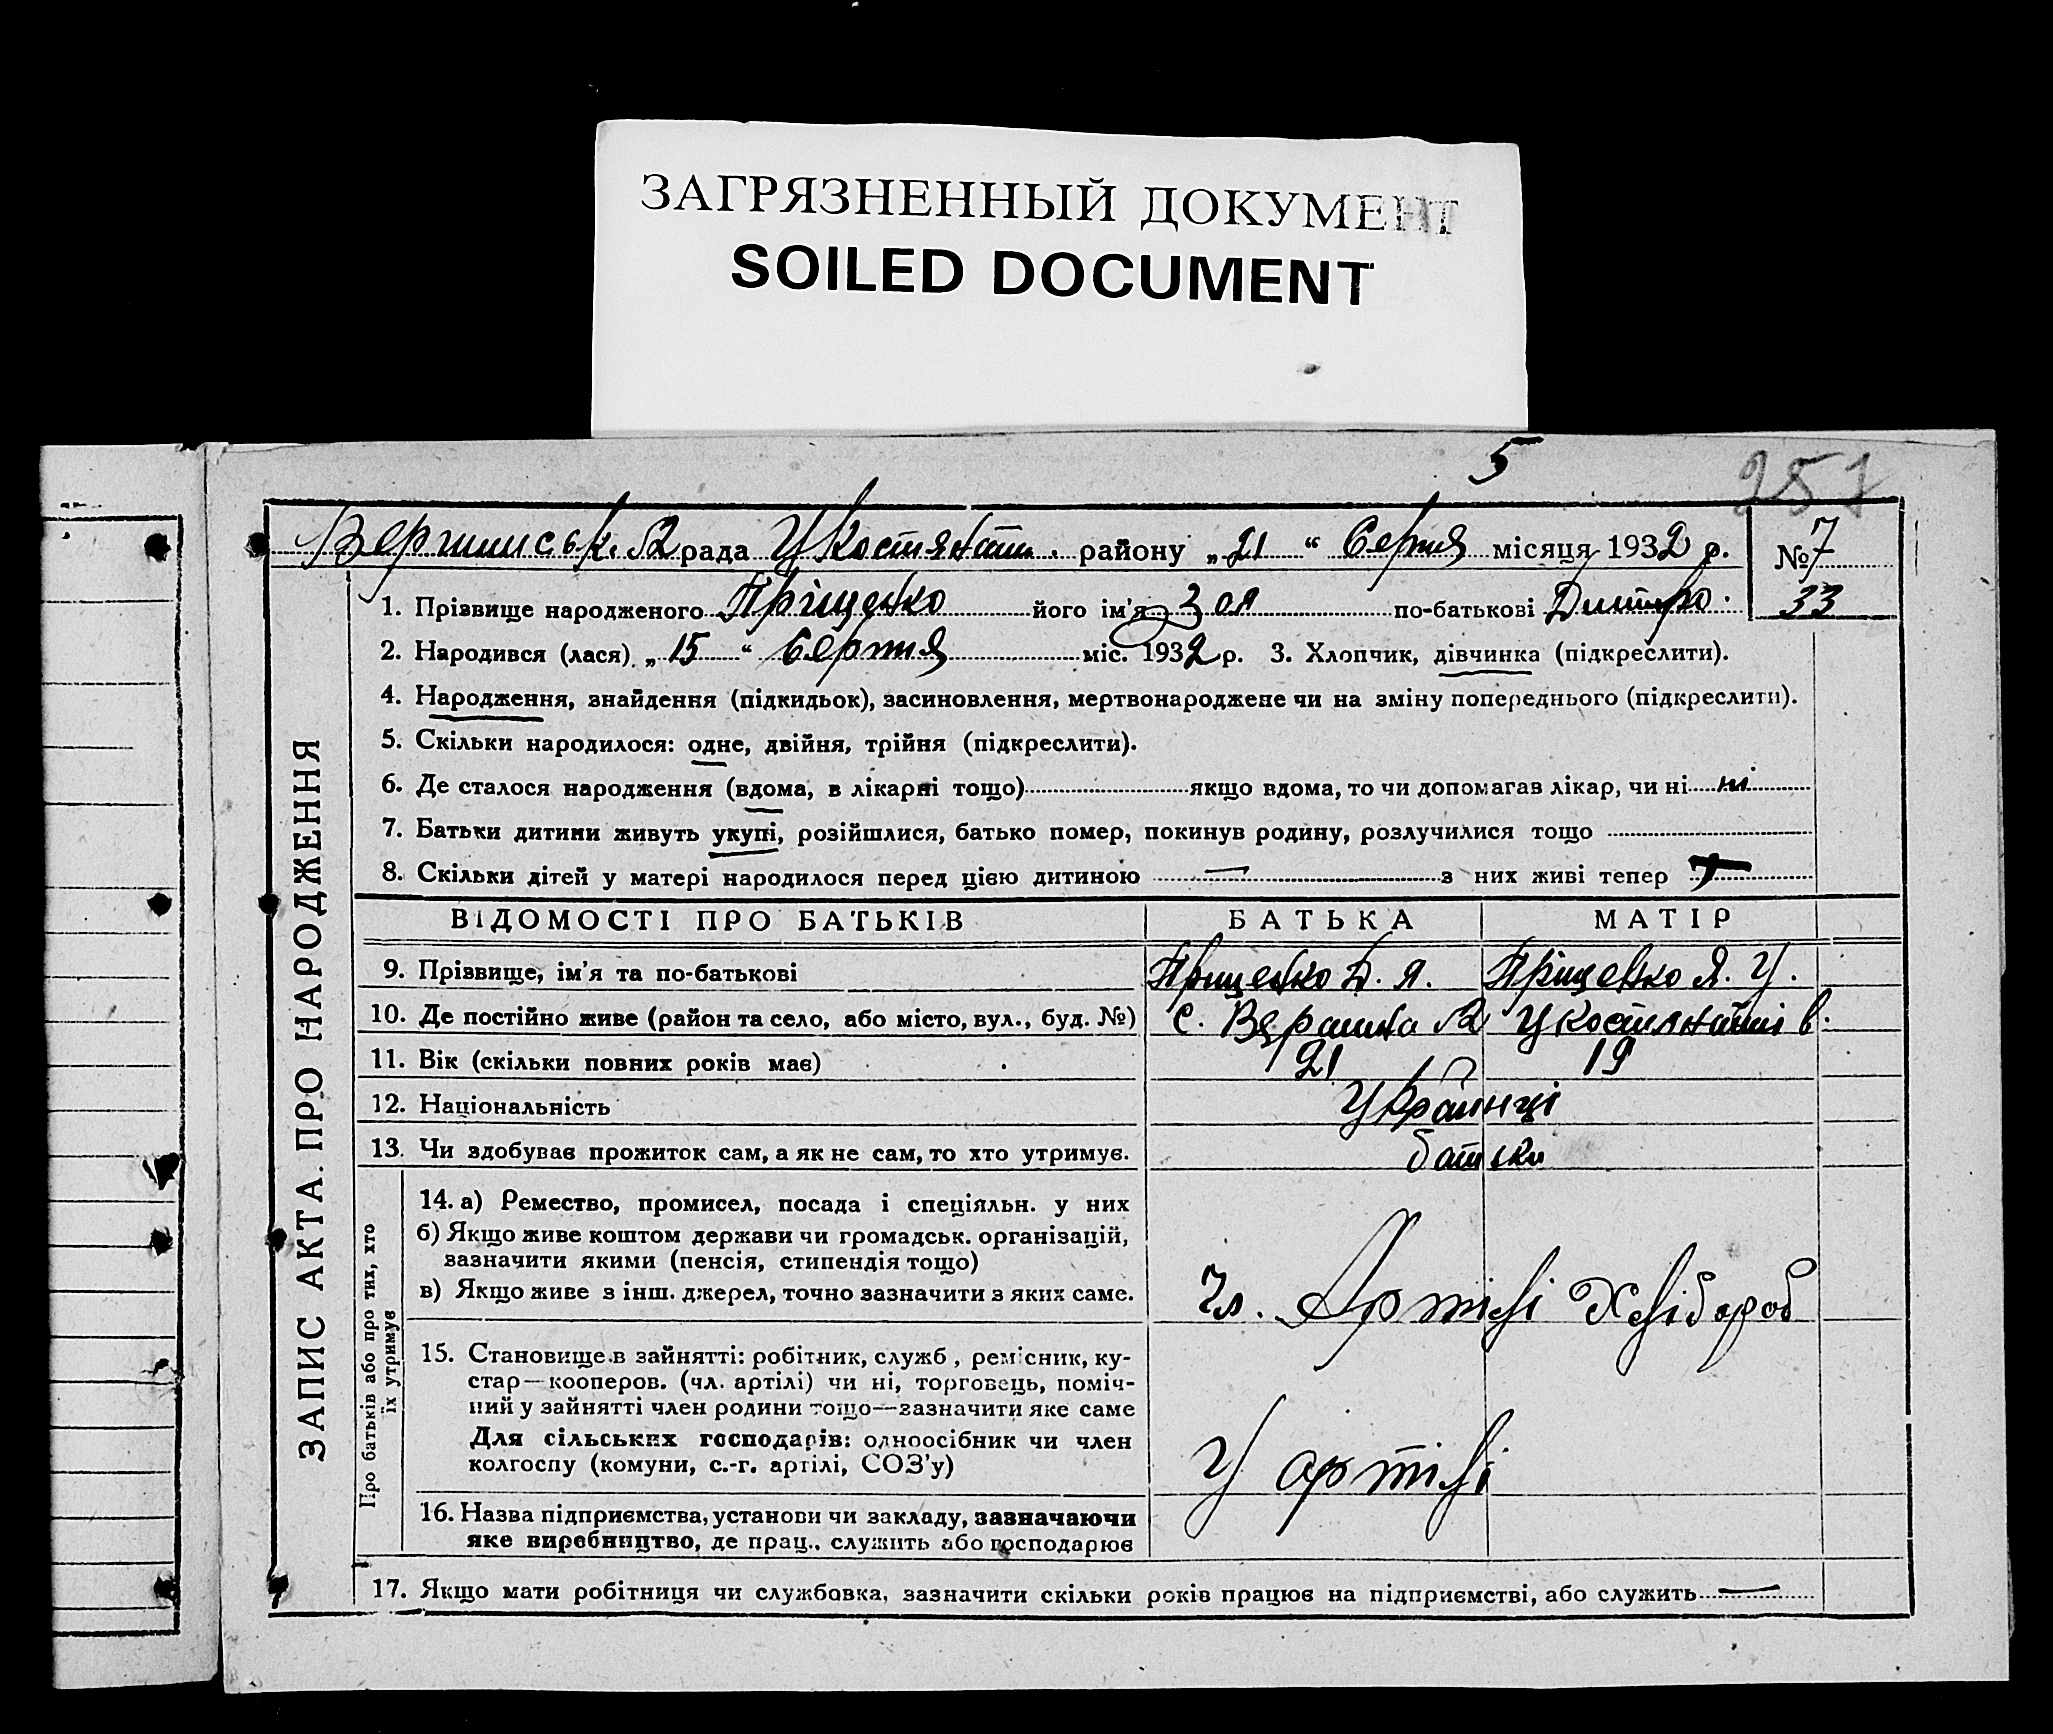 ЗАГРЯЗНЕННЫЙ ДОКУМЕНТ
SOILED DOCUMENT
5
251
рада району „ 21 “ Серпня місяця 1932 р.
№ 7
33
1. Прізвище народженого Пріщенко його ім'я Зоя по-батькові Дмитро.
2. Народився (лася) „ 15 “ Серпня міс. 1932 р. 3. Хлопчик, дівчинка (підкреслити).
4. Народження, знайдення (підкидьок), засиновлення, мертвонароджене чи на зміну попереднього (підкреслити).
5. Скільки народилося: одне, двійня, трійня (підкреслити).
6. Де сталося народження (вдома, в лікарні тощо) якщо вдома, то чи допомагав лікар, чи ні ні
7. Батьки дитини живуть укупі, розійшлися, батько помер, покинув родину, розлучилися тощо
8. Скільки дітей у матері народилося перед цією дитиною — з них живі тепер
ВІДОМОСТІ ПРО БАТЬКІВ БАТЬКА МАТІР
9. Прізвище, ім'я та по-батькові Прищенко Д. Я. Пріщенко Я. У.
10. Де постійно живе (район та село, або місто, вул., буд. №) с.
11. Вік (скільки повних років має) 21 19
12. Національність Українці
13. Чи здобуває прожиток сам, а як не сам, то хто утримує. батьки
14. а) Ремество, промисел, посада і спеціяльн. у них
б) Якщо живе коштом держави чи громадськ. організацій,
зазначити якими (пенсія, стипендія тощо)
в) Якщо живе з інш. джерел, точно зазначити з яких саме.
Чл. Артілі Хлібороб
15. Становище в зайнятті: робітник, служб., ремісник, ку-
стар—кооперов. (чл. артілі) чи ні, торговець, поміч-
ний у зайнятті член родини тощо—зазначити яке саме
Для сільських господарів: одноосібник чи член
колгоспу (комуни, с.-г. артілі, СОЗ'у)
У артілі
16. Назва підприємства, установи чи закладу, зазначаючи
яке виробництво, де прац., служить або господарює
17. Якщо мати робітниця чи службовка, зазначити скільки років працює на підприємстві, або служить —
ЗАПИС АКТА ПРО НАРОДЖЕННЯ
Про батьків або про тих, хто
їх утримує